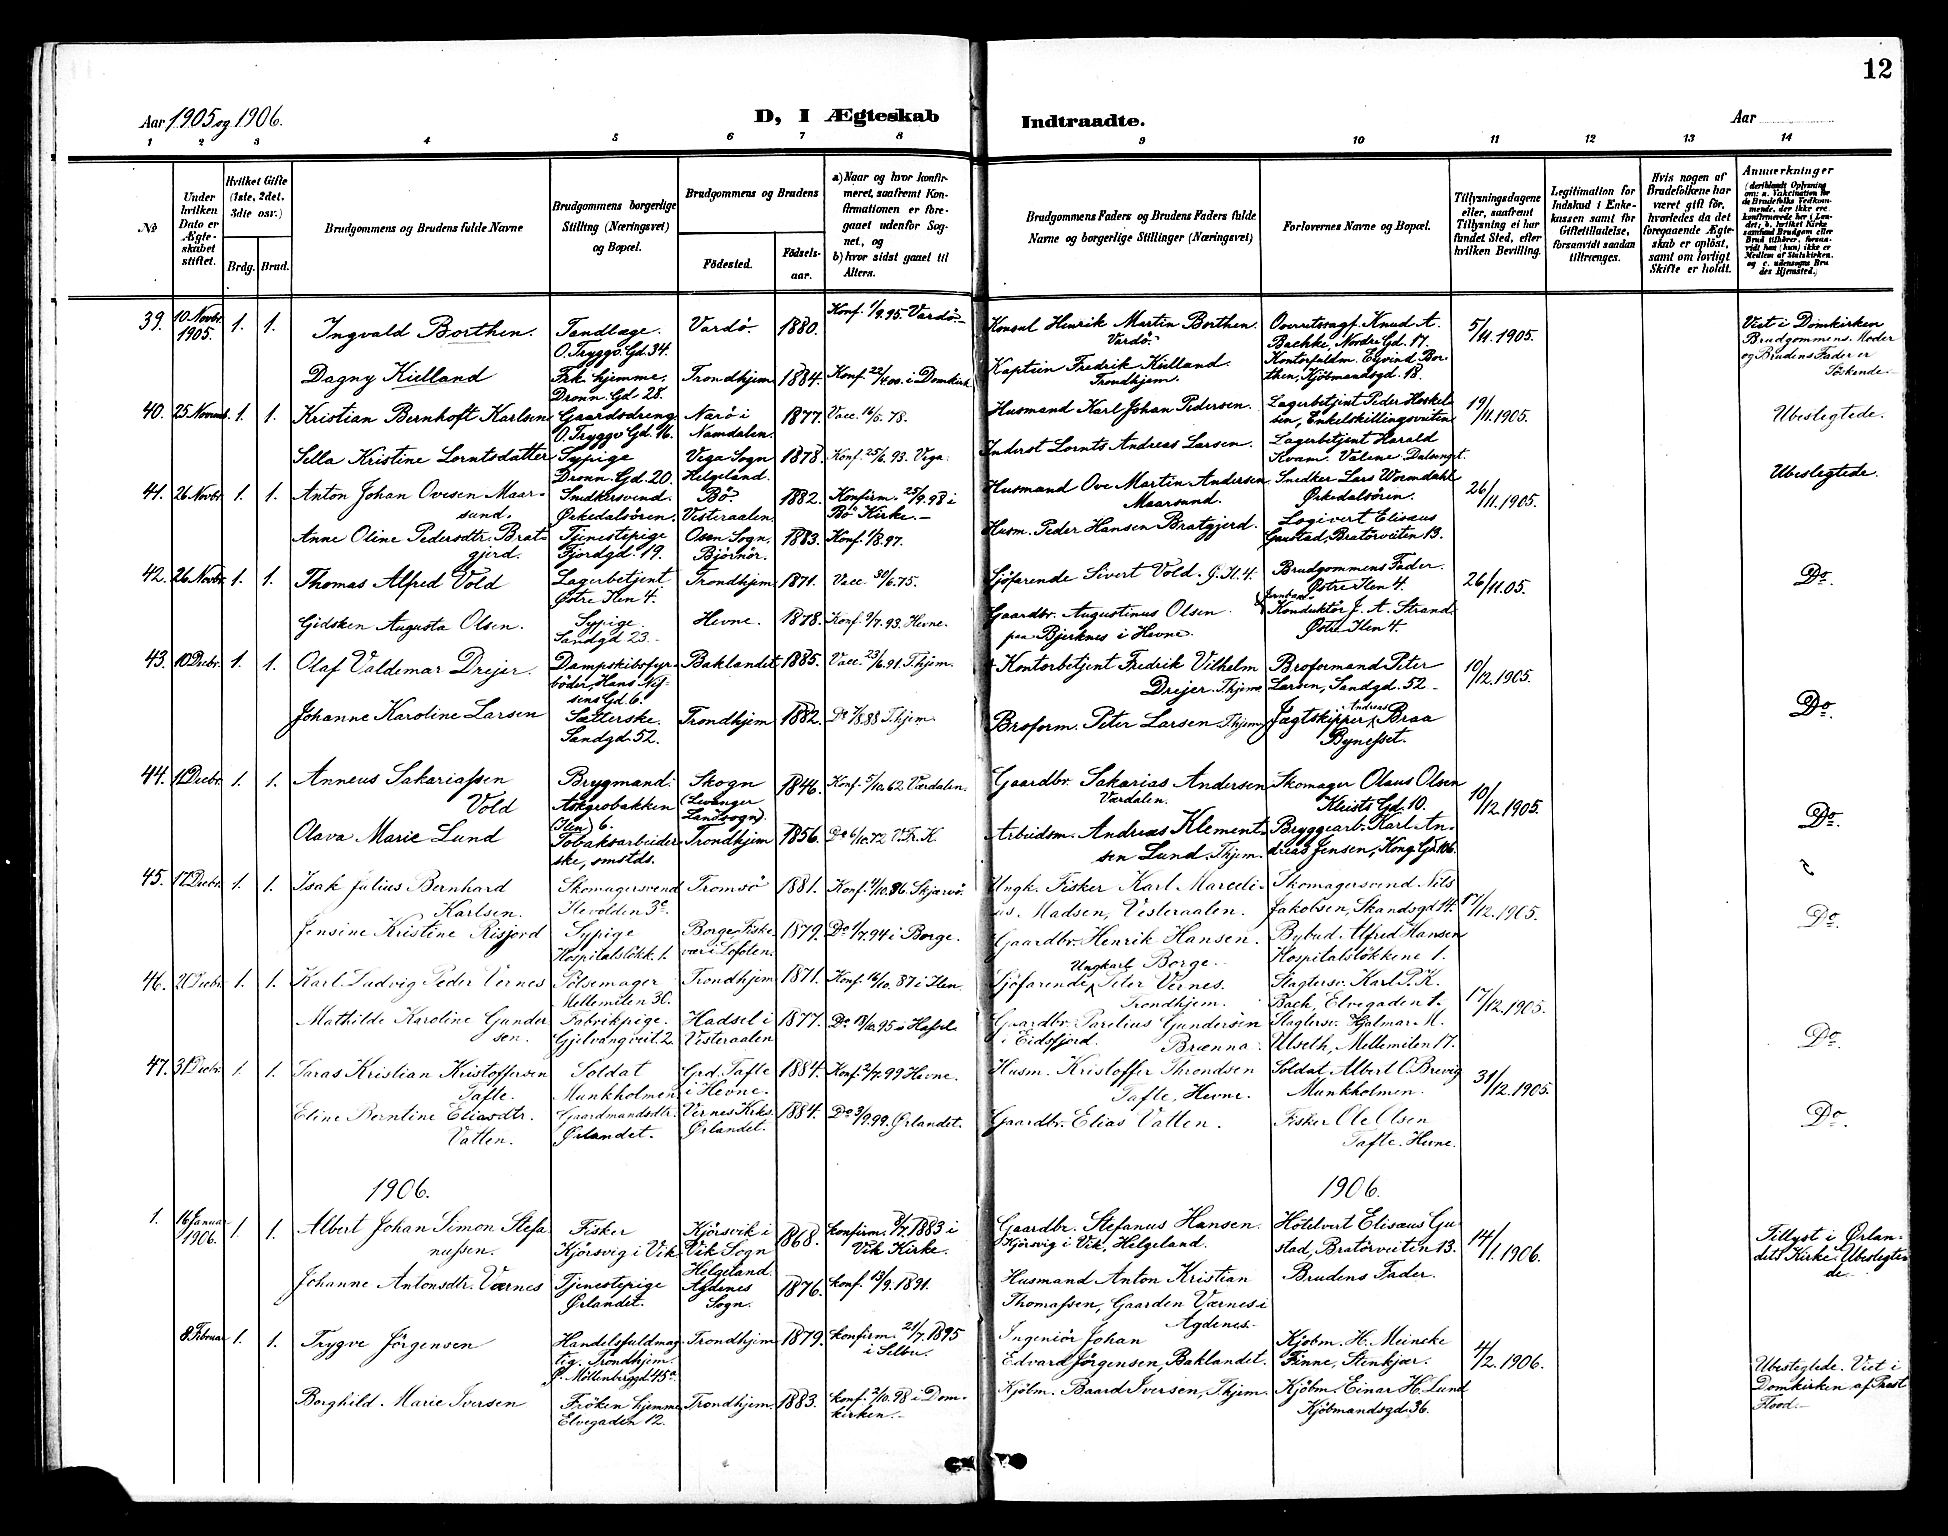 12
Aar 1905 og 1906.
D, I Ægteskab Indtraadte.
Aar
1 2 3 4 5 6 7 8 9 10 11 12 13 14
No
Under hvilken Dato er Ægteskabet stiftet.
Hvilket Gifte (1ste, 2det, 3die osv.)
Brdg. Brud.
Brudgommens og Brudens fulde Navne
Brudgommens borgerlige Stilling (Næringsvei) og Bopæl.
Brudgommens og Brudens
Fødested.
Fødselsaar.
a) Naar og hvor konfirmeret, saafremt Konfirmationen er foregaaet udenfor Sognet, og
b) hvor sidst gaaet til Alters.
Brudgommens Faders og Brudens Faders fulde Navne og borgerlige Stillinger (Næringsvei)
Forlovernes Navne og Bopæl.
Tillysningsdagene eller, saafremt Tillysning ei har fundet Sted, efter hvilken Bevilling.
Legitimation for Indskud i Enkekassen samt for Giftetilladelse, forsaavidt saadan tiltrænges.
Hvis nogen af Brudefolkene har været gift før, hvorledes da det foregaaende Ægteskab er opløst, samt om lovligt Skifte er holdt.
Anmærkninger
39. 10 Novbr. 1905. 1. 1. Ingvald Borthen. Tandlæge. O. Tryggv. Gd. 34. Vardö. 1880. Konf. 1/9.95 Vardö.
Konsul Henrik Martin Borthen. Vardö. Overretssagf. Knud A. Bachke, Nordre Gd. 17. 5/11.1905. Viet i Domkirken Brudgommens Moder og Brudens Fader er Söskende.
Dagny Kielland Frk. hjemme, Dronn. Gd. 28. Trondhjem 1884. Konf. 22/4.00. i Domkirk.
Kaptein Fredrik Kielland. Trondhjem. Kontorfuldm. Eyvind Borthen, Kjöbmandsgd. 18.
40. 25 Novemb. 1. 1. Kristian Bernhoft Karlsen Gaardsdreng O. Tryggv. Gd. 16. Nærö i Namdalen. 1877. Vacc. 16/5.78.
Husmand Karl Johan Pedersen. Lagerbetjent Peder Enkelskillingsveiten 19/11.1905. Ubeslegtede.
Sella Kristine Lorntsdatter Sypige Dronn. Gd. 20. Vega Sogn Helgeland. 1878. Konf. 25/6.93. Vega.
Inderst Lornts Andreas Larsen. Lagerbetjent Harald Kvam.
41. 26 Novbr. 1. 1. Anton Johan Ovesen Maarsund. Snedkersvend. Ørkedalsören. Bö. Vesteraalen. 1882. Konfirm. 25/9.98 i Bö Kirke.
Husmand Ove Martin Andersen Maarsund. Snedker Lars Wormdahl Ørkedalsören. 26/11.1905. Ubeslegtede.
Anne Oline Pedersdtr. Bratgjerd. Tjenestepige Fjordgd. 19. Osen Sogn, Björnör. 1883. Konf. 1/8.97.
Husm. Peder Hansen Bratgjerd. Logivert Elisæus Gustad, Bratörveiten 13.
42. 26 Novbr. 1. 1. Thomas Alfred Vold Lagerbetjent Østre Ilen 4. Trondhjem 1871. Vacc. 30/6.75.
Sjöfarende Sivert Vold. Brudgommens Fader. Østre Ilen 4. 26/11.05. Do.
Gidsken Augusta Olsen. Sypige. Sandgd 23. Hevne. 1878. Konf. 9/7.93. Hevne.
Gaardbr. Augustinus Olsen. paa Bjerknes i Hevne. Jernban. Konduktör J. A. Strand Østre Ilen 4.
43. 10 Decbr. 1. 1. Olaf Valdemar Drejer. Dampskibsfyrböder, Hans Nissens Gd. 6. Baklandet 1885. Vacc. 23/6.91. T.hjem.
† Kontorbetjent Fredrik Vilhelm Drejer. T.hjem. Broformand Peter Larsen, Sandgd. 52. 10/12.1905. Do.
Johanne Karoline Larsen Sætterske. Sandgd. 52. Trondhjem 1882. Do. 7/8.88 T.hjem.
Broform. Peter Larsen. T.hjem. Jægtskipper Andreas Braa Bynesset.
44. 11 Decbr. 1. 1. Anneus Sakariassen Vold Brygmand. Asegrobakken (Ilen) 6. Skogn (Levanger Landsogn). 1846. Konf. 5/10.62 Værdalen.
Gaardbr. Sakarias Andersen Værdalen. Skomager Olaus Olsen Klosts Gd. 10. 10/12.1905. Do.
Olava Marie Lund Tobaksarbeiderske, smstds. Trondhjem 1856. Do. 6/10.72 V. Fr. K.
Arbeidsm. Andreas Klementsen Lund. T.hjem. Bryggearb. Karl Andreas Jensen, Kong. Gd.
45. 17 Decbr. 1. 1. Isak Julius Bernhard Karlsen. Skomagersvend Ilevolden 3c. Tromsö 1881. Konf. 4/10.96. Skjærvö.
Ungk. Fisker Karl Marcelius Madsen, Vesteraalen. Skomagersvend Nils Jakobsen, Skandsgd 14. 17/12.1905. Do.
Jensine Kristine Risjord Sypige Hospitalslökk. 1. Borge Fiskevær i Lofoten. 1879. Do. 1/7.94 i Borge.
Gaardbr. Henrik Hansen. Borge. Bybud. Alfred Hansen Hospitalslökkene 1.
46. 21 Decbr. 1. 1. Karl Ludvig Peder Vernes Pölsemager Mellemilen 30. Trondhjem 1871. Konf. 16/10.87 i Ilen.
Sjöfarende Ungkarl Peter Vernes. Trondhjem. Slagtersv. Karl P. K. Bach, Elvegaden 1. 17/12.1905. Do.
Mathilde Karoline Gundersen. Fabrikpige. Gjelvangveit. 2. Hadsel i Vesteraalen 1877. Do. 13/10.95 i Hassel.
Gaardbr. Parelius Gundersen i Eidsfjord. Brænna. Slagtersv. Hjalmar M. Ulseth, Mellemilen 17.
47. 31 Decbr. 1. 1. Saras Kristian Kristoffersen Tafte. Soldat Munkholmen Grd. Tafte i Hevne. 1884. Konf. 2/7.99 Hevne.
Husm. Kristoffer Throndsen Tafte, Hevne. Soldat Albert O. Brevig Munkholmen. 31/12.1905. Do.
Eline Berntine Eliasdtr. Vatten. Gaardmandsdtr. Ørlandet. Vernes Kirks. Ørlandet. 1884. Do. 3/9.99. Ørlandet.
Gaardbr. Elias Vatten. Fisker Ole Olsen Tafte. Hevne.
1906. 1906.
1. 16 Januar 1906. 1. 1. Albert Johan Simon Stefanussen. Fisker Kjörsvig i Vik Kjörsvik i Vik Sogn Helgeland. 1868. konfirm. 8/7.1883 i Vik Kirke.
Gaardbr. Stefanus Hansen. Kjörsvig i Vik, Helgeland. Hotelvert Elisæus Gustad, Bratörveiten 13. 14/1.1906. Tillyst i Ørlandets Kirke. Ubeslegtede.
Johanne Antonsdtr. Værnes Tjenestepige Ørlandet. Agdenes Sogn. 1876. konf. 13/9.1891.
Husmand Anton Kristian Thomassen, Gaarden Værnes i Agdenes. Brudens Fader.
8. Februar 1. 1. Trygve Jörgensen Handelsfuldmægtig. Trondhjem. Möllenberggd. 45a. Trondhjem 1879. konfirm. 21/7.1895 i Selbu.
Ingeniör Johan Edvard Jörgensen, Baklandet. Kjöbm. H. Meincke Finne, Stenkjær. 4/2.1906. Ubeslegtede. Viet i Domkirken af Prest Flood.
Borghild Marie Iversen Fröken hjemme Elvegaden 12. Trondhjem. 1883. konf. 2/10.98 i Domkirken.
Kjöbm. Baard Iversen, T.hjem. Kjöbm. Einar H. Lund Kjöbmandsgd. 36.